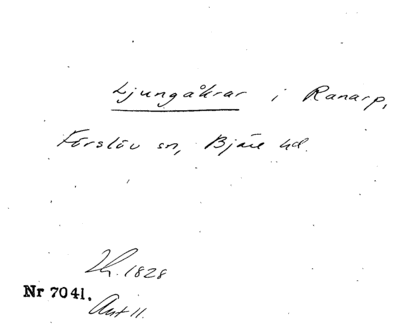 Ljungåkrar i Ranarp,
Förslöv sn, Bjäre hd.
Lh. 1828
Nr 7041.
Avt 11.